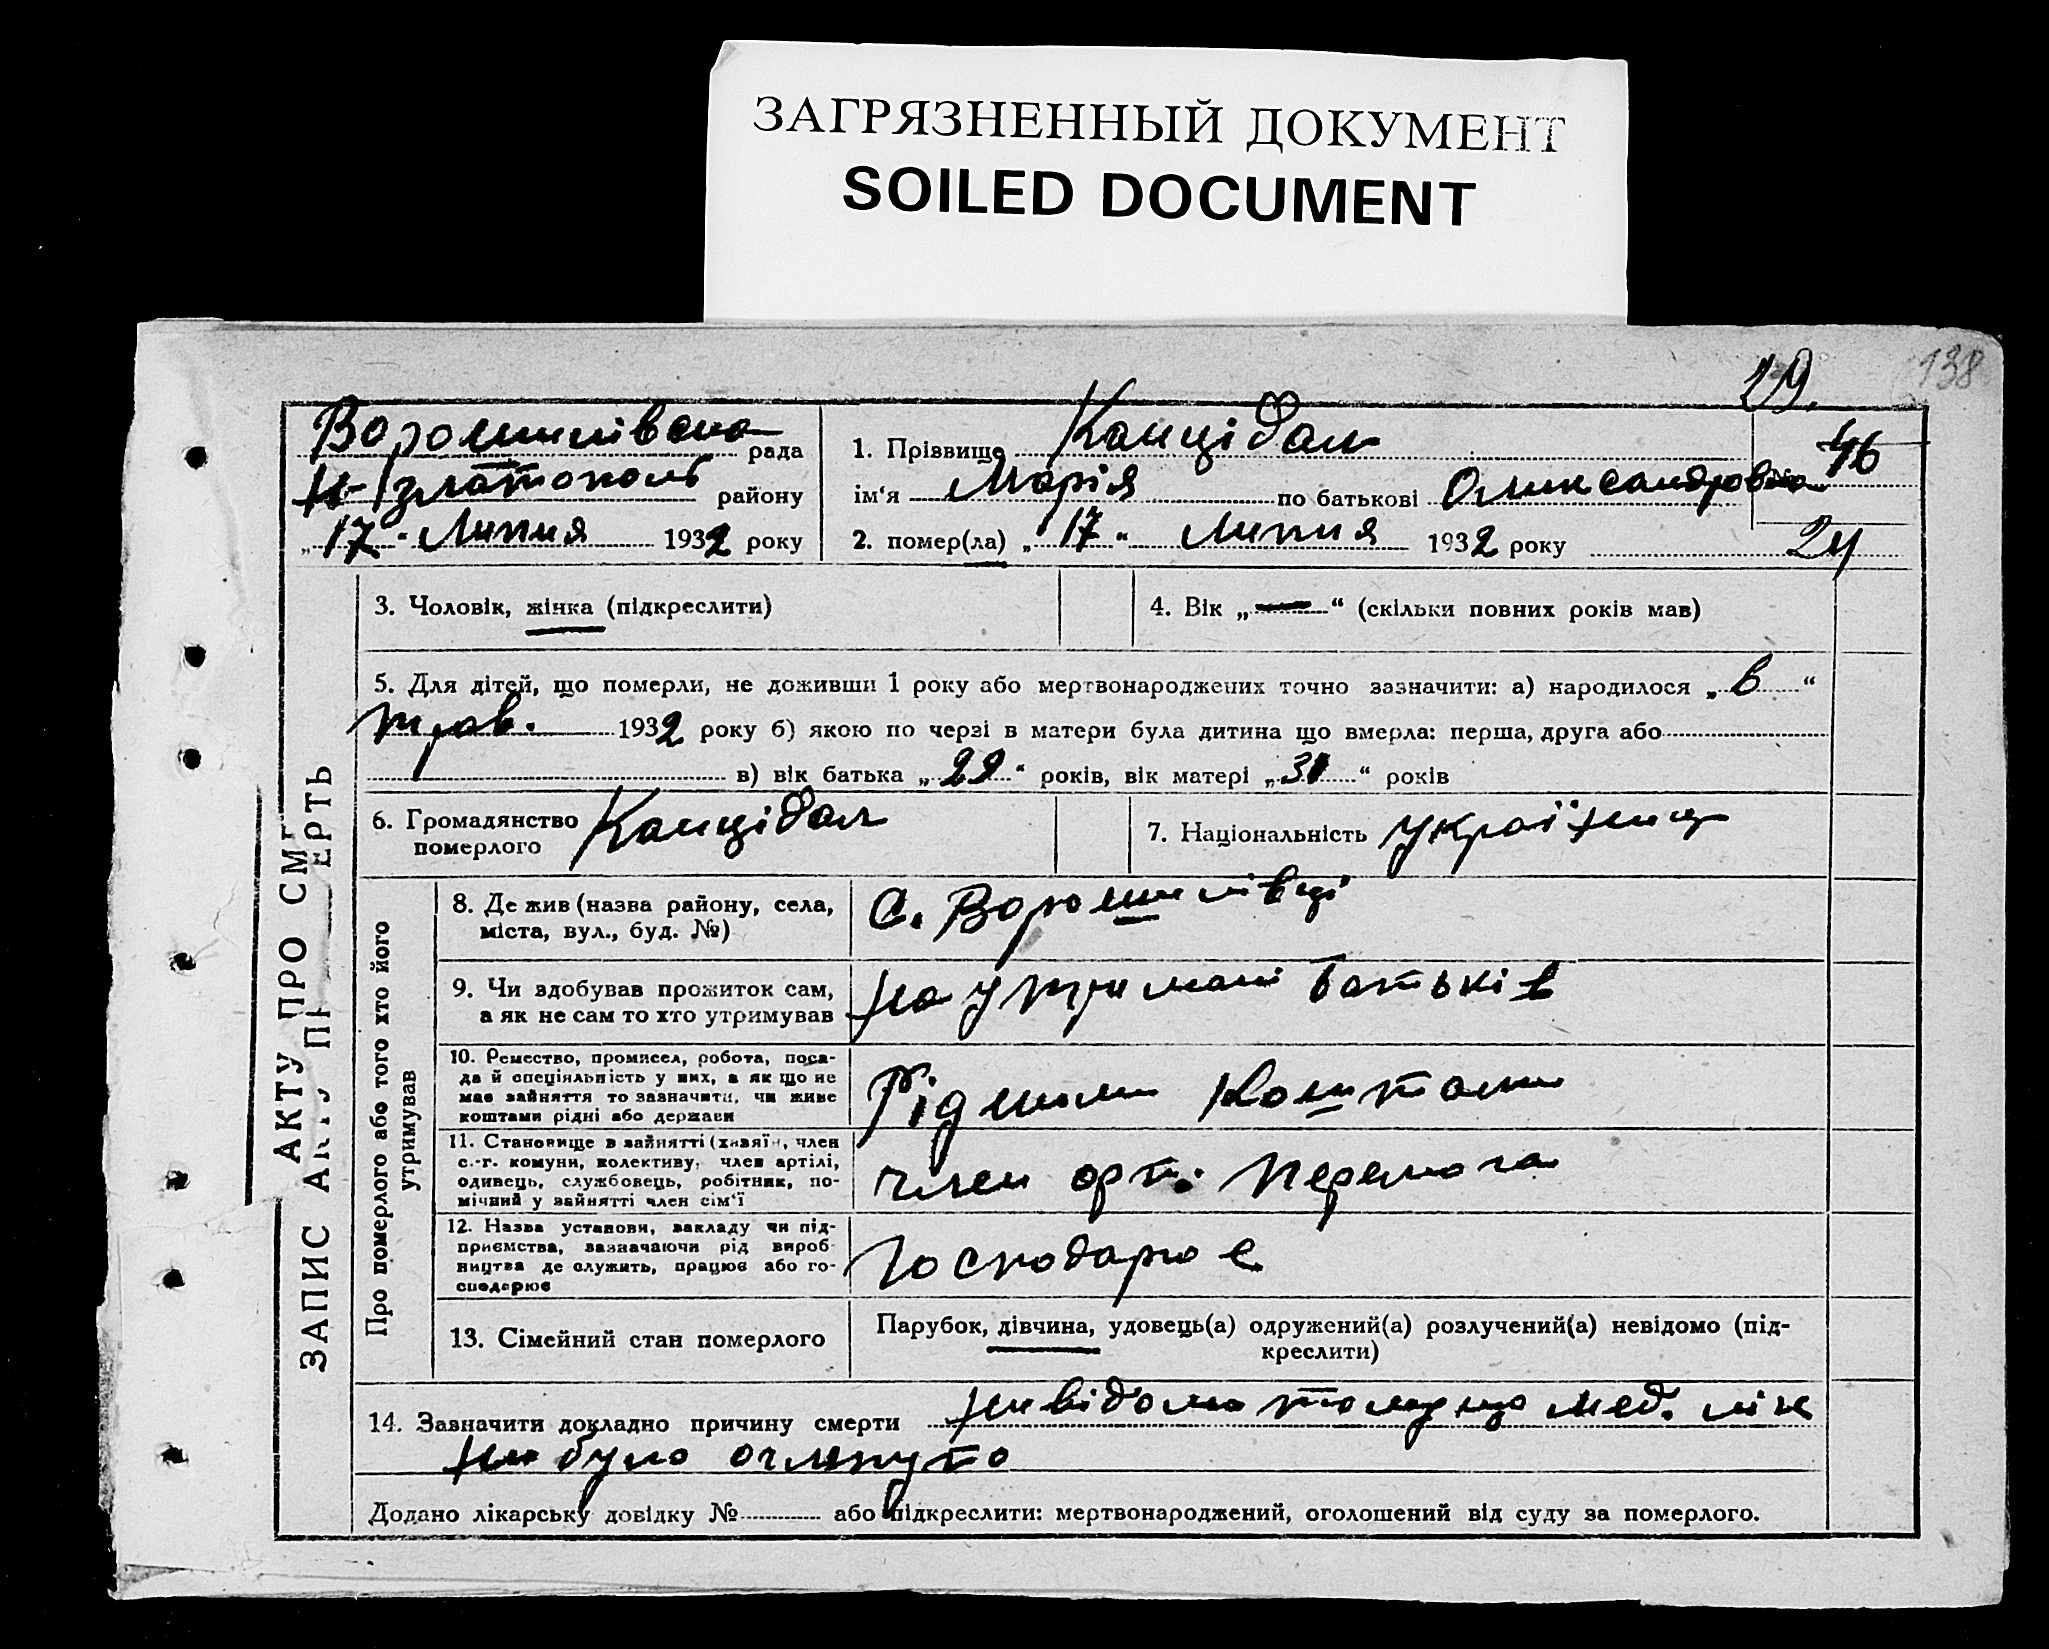 ЗАГРЯЗНЕННЫЙ ДОКУМЕНТ
SOILED DOCUMENT
138
19.
Ворошилівська рада
Н-Златополь району
„17“ Липня 1932 року
1. Прізвище Канцідал
46
ім‘я Марія по батькові Олександровна
2. помер(ла) „17“ Липня 1932 року
24
3. Чоловік, жінка (підкреслити)
4. Вік „—“ (скільки повних років мав)
5. Для дітей, що померли, не доживши 1 року або мертвонароджених точно зазначити: а) народилося „в“
трав. 1932 року б) якою по черзі в матери була дитина що вмерла: перша, друга або
в) вік батька „29“ років, вік матері „31“ років
6. Громадянство Канцідал
померлого
7. Національність Українця
АКТУ ПРО СМ
ЗАПИС АКТУ ПР ЕРТЬ
Про померлого або того хто його
утримував
8. Де жив (назва району, села,
міста, вул., буд. №)
с. Ворошилівці
9. Чи здобував прожиток сам,
а як не сам то хто утримував
на утримані батьків
10. Ремество, промисел, робота, поса-
да й спеціяльність у них, а як що не
має зайняття то зазначити, чи живе
коштами рідні або держави
Рідними коштами
11. Становище в зайнятті (хазяїн, член
с.-г. комуни, колективу, член артілі,
одивець, службовець, робітник, по-
мічний у зайнятті член сім‘ї
член арт. Перемога
12. Назва установи, закладу чи під-
приємства, зазначаючи рід вироб-
ництва де служить, працює або го-
сподарює
Господарює
13. Сімейний стан померлого
Парубок, дівчина, удовець(а) одружений(а) розлучений(а) невідомо (під-
креслити)
14. Зазначити докладно причину смерти невідомо тому що мед. лік
не було оглянуто
Додано лікарську довідку № або підкреслити: мертвонароджений, оголошений від суду за померлого.